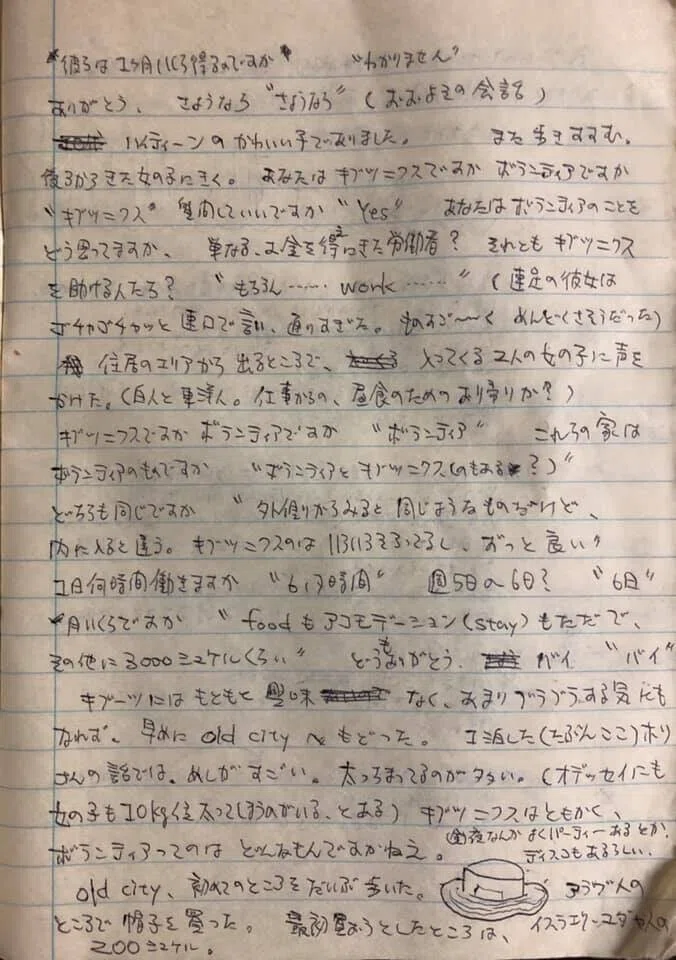 "彼らは1ヶ月いくら得るのですか" "わかりません"
ありがとう、さようなら "さようなら" (おおよその会話)
ハイティーンのかわいい子でありました。 また歩きすすむ。
後ろからきた女の子にきく。 あなたはキブツニクスですか ボランティアですか
"キブツニクス" 質問していいですか "Yes" あなたはボランティアのことを
どう思ってますか、 単なる、お金を得にきた労働者? それともキブツニクス
を助ける人たち? "もちろん…… work ……" (速足の彼女は
ゴチャゴチャッと速口で言い、通りすぎた。ものすご〜く めんどくさそうだった)
住居のエリアから出るところで、 入ってくる2人の女の子に声を
かけた。(白人と東洋人。仕事からの、昼食のための帰りか?)
キブツニクスですか ボランティアですか "ボランティア" これらの家は
ボランティアのものですか "ボランティアとキブツニクス(のもある?)"
どちらも同じですか "外側からみると同じようなものだけど、
内に入ると違う。キブツニクスのはいろいろそろってるし、ずっと良い"
1日何時間働きますか "6,7時間" 週5日〜6日? "6日"
月いくらですか "foodもアコモデーション(stay)もただで、
その他に3000シュケルくらい" どうもありがとう、 バイ "バイ"
キブーツにはもともと興味 なく、あまりブラブラする気にも
なれず、早めに old city へもどった。 (たぶんここ)ホリ
さんの話では、めしがすごい。太っちまってるのが多い。(オデッセイにも
女の子も10kg位太ってしまうのがいる、とある) キブツニクスはともかく、
ボランティアってのは どんなもんですかねえ。
夜なんか よくパーティーあるとか。
ディスコもあるらしい。
old city、初めてのところをだいぶ歩いた。 アラヴ人の
ところで帽子を買った。 最初買おうとしたところは、イスラエリーユダヤ人の
200シュケル。